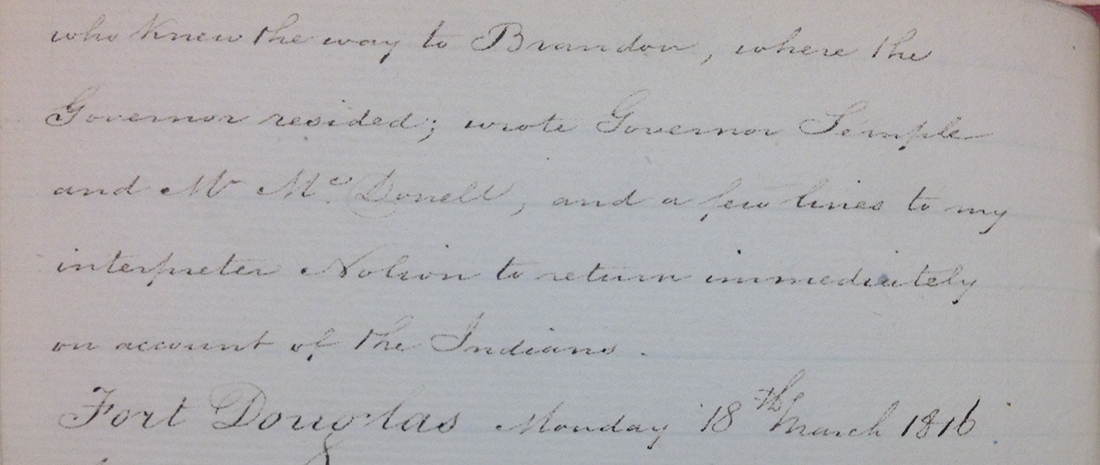 who knew the way to Brandon, where the
Governor resided; wrote Governor Semple
and Mr Mc. Donell, and a few lines to my
interpreter Nolion to return immediately
on account of the Indians.
Fort Douglas Monday 18th March 1816.